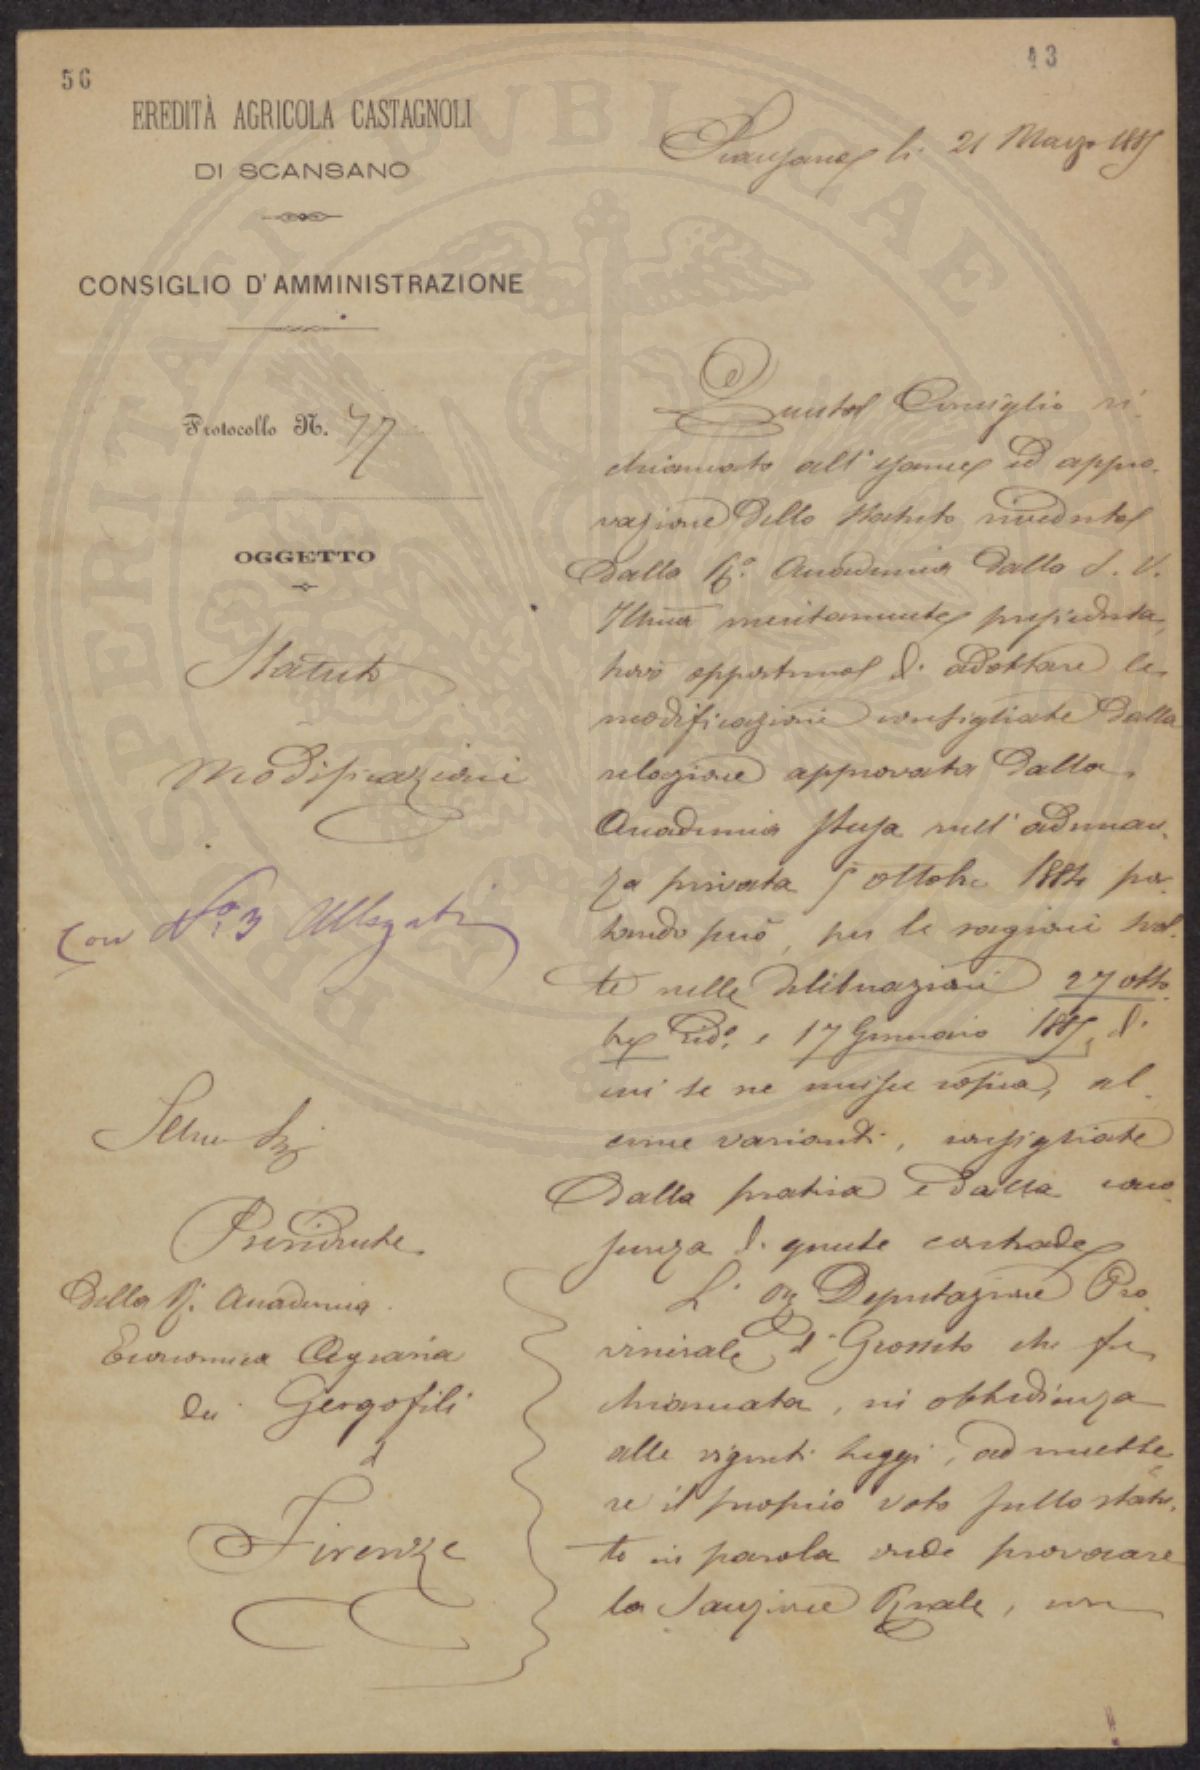 56
43
EREDITÀ AGRICOLA CASTAGNOLI
DI SCANSANO
CONSIGLIO D'AMMINISTRAZIONE
Protocollo N. 77
OGGETTO
Statuto
Modificazioni
Con N.º 3 Allegati
Presidente
della R. Accademia
Economica Agraria
dei Gergofili
Firenze
Scansano li 21 Marzo 1885
Questo Consiglio ri-
chiamato all'esame ed appro-
vazione dello Statuto riveduto
dalla Rº. Accademia dalla S. V.
Illma meritamente presieduta,
trovò opportuno di adottare le
modificazioni consigliate dalla
relazione approvata dalla
Accademia stessa nell'adunan-
za privata 5 ottobre 1884 por-
tando però, per le ragioni svol-
te nelle deliberazioni 27 otto-
bre e 17 Gennaio 1885, di
cui se ne unisce copia, al-
cune varianti, consigliate
dalla pratica e dalla cono-
scenza di queste contrade
L'On Deputazione Pro-
vinciale di Grosseto che fu
chiamata, in obbedienza
alle vigenti Leggi, ad emette-
re il proprio voto sullo statu-
to in parola onde provocare
la Sanzione Reale, con